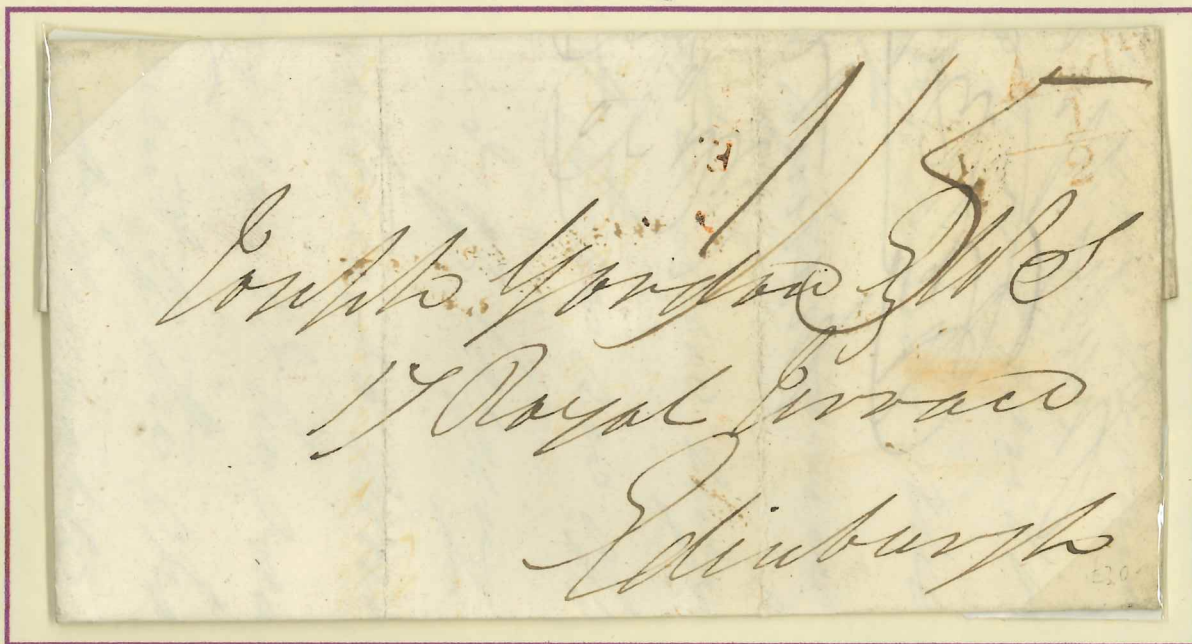 1/5
½
Joseph Gordon Esq WS
17 Royal Terrace
Edinburgh
£20